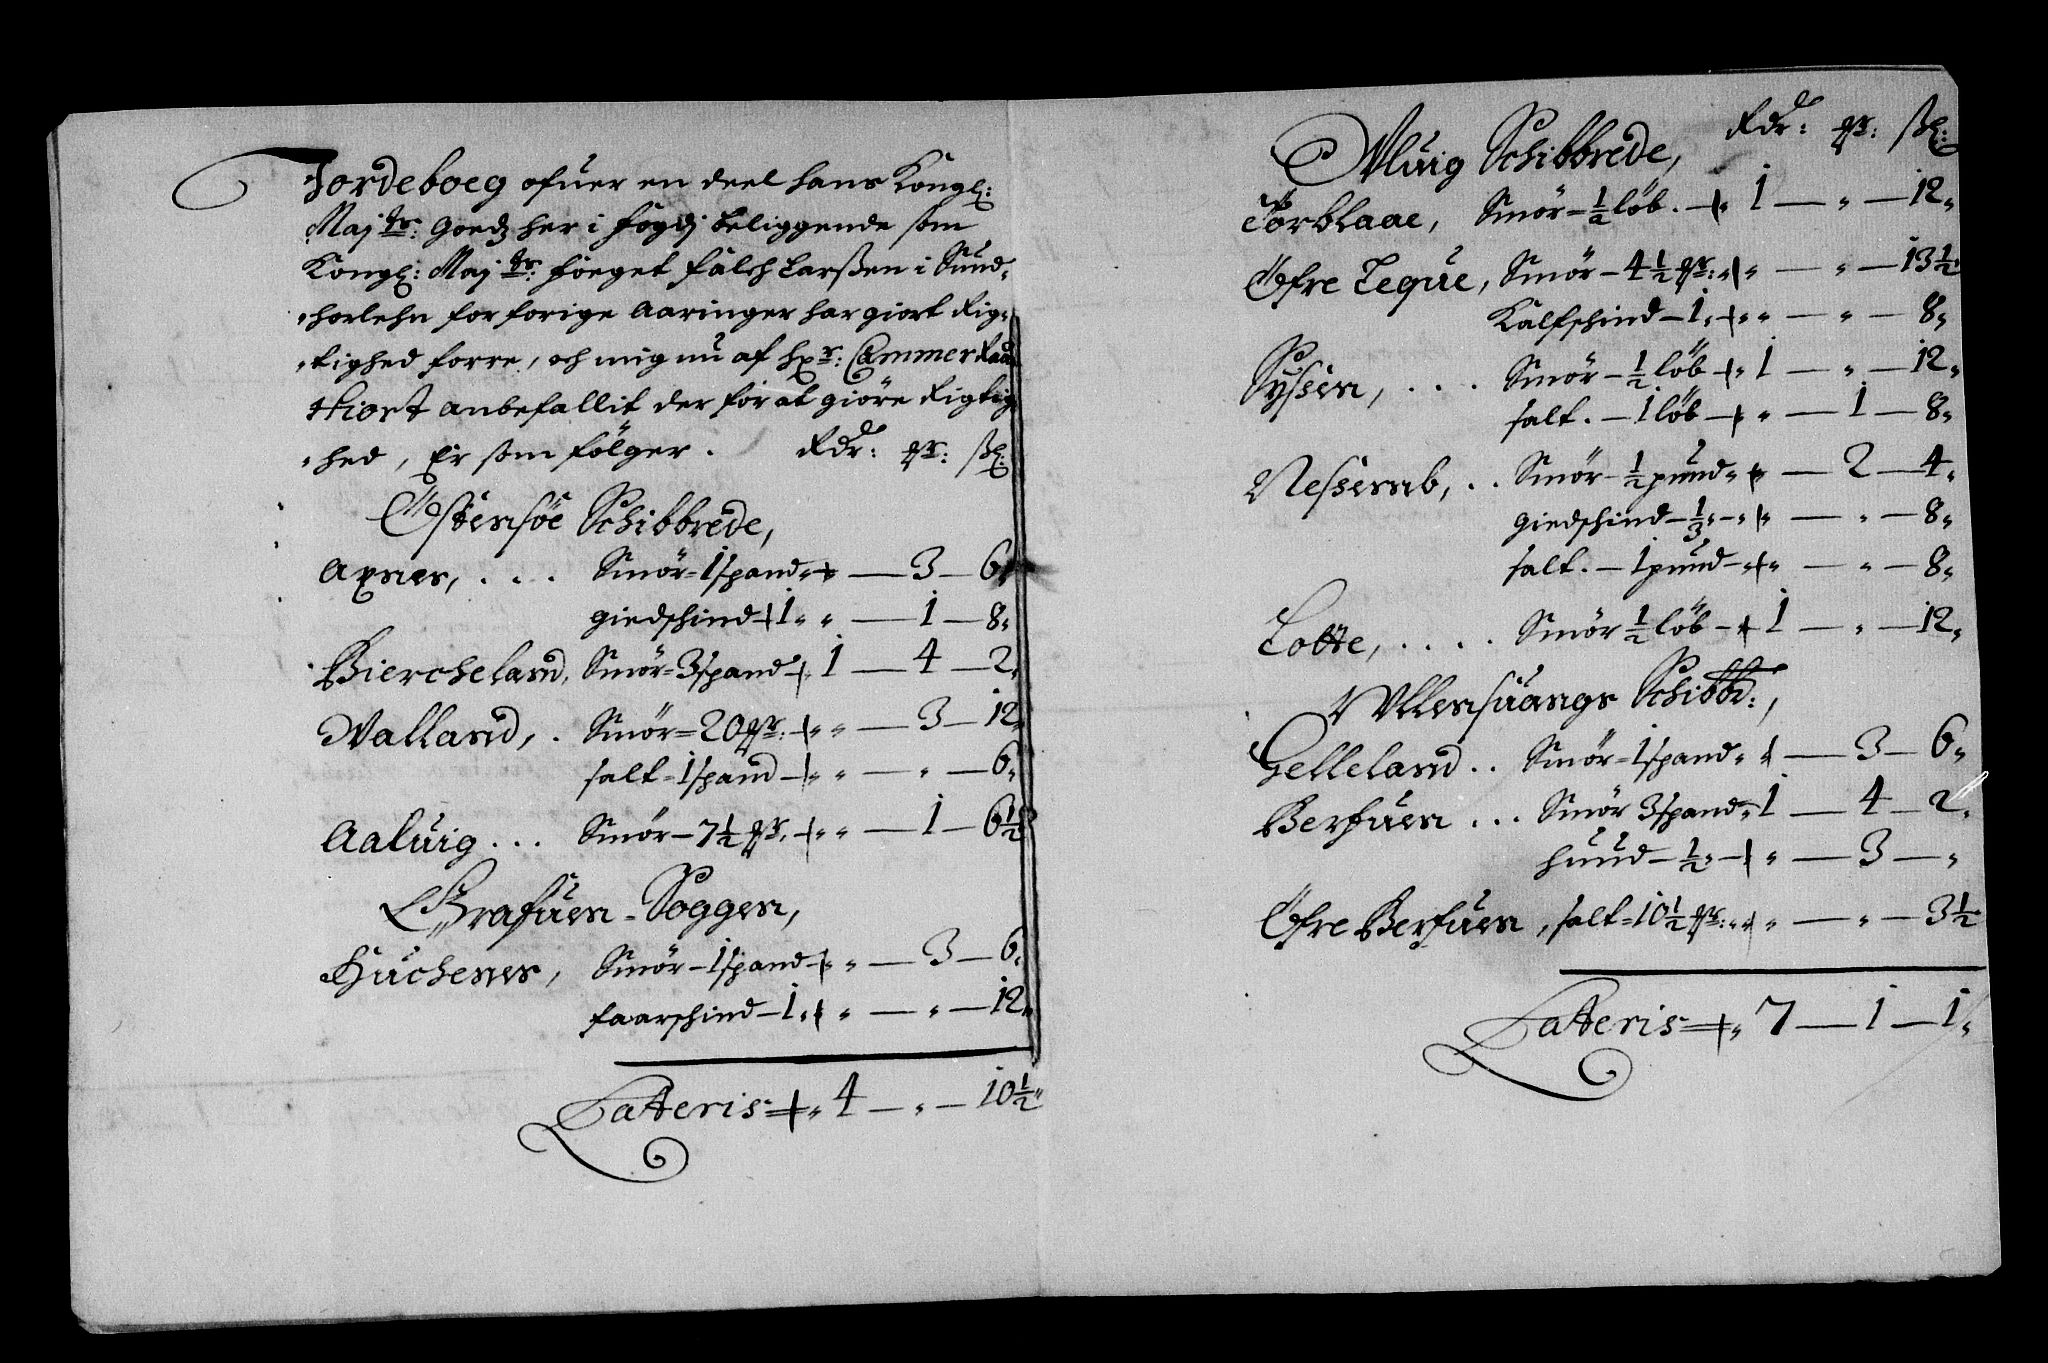 Jordeboeg ofuer en deel hans Kongl:
Maj ts: Goedz her i fogdj beliggende som
Kongl: Maj ts: foeget Falch Larßen i Sund-
-horlehn for forige Aaringer har giort Rig-
-tighed forre, och mig nu af Hr: Cammer Raad
Hiort anbefallit der for at giöre Rigtig-
-hed, Er som fölger. Rdr: mr: ßl:
Östensöe Schibbrede,
Axnes, . . . Smör = 1 spand „ „ — 3 — 6 „
giedschind 1 „ „ — 1 — 8 „
Biercheland, Smör = 3 spand „ 1 — 4 — 2 „
Walland, . Smör = 20 mr: „ „ — 3 — 12 „
salt = 1 spand „ „ — „ — 6 „
Aaluig . . . Smör — 7 1/2 mr. „ „ — 1 — 6 1/2
Grafuen - Soggen,
Huchenes, Smör — 1 spand „ „ — 3 — 6 „
faarschind — 1 „ „ — „ — 12 „
Lateris „ 4 — „ — 10 1/2 „
Rdr: mr: ßl:
Uluig Schibbrede,
Torblaae, Smör — 1/2 löb . „ 1 — „ — 12 „
Öfre Leque, Smör — 4 1/2 mr: „ „ — „ — 13 1/2
Kalfschind — 1 „ „ „ — „ — 8 „
Syssen, . . . . Smör — 1/2 löb „ 1 — „ — 12 „
salt . — 1 löb „ „ — 1 — 8 „
Nessemb, . . Smör — 1/2 pund „ „ — 2 — 4 „
giedschind — 1/3 „ „ „ — „ — 8 „
salt . — 1 pund „ „ — „ — 8 „
Lotte, . . . . Smör 1/2 löb — „ 1 — „ — 12 „
Ullensuangs Schibbr:,
Helleland . . Smör = 1 spand „ „ — 3 — 6 „
Berfuen . . . Smör 3 spand „ 1 — 4 — 2 „
huud — 1/2 „ „ „ — 3 — „
Öfre Berfuen, salt = 10 1/2 mr: „ „ — „ — 3 1/2
Lateris „ 7 — 1 — 1 „